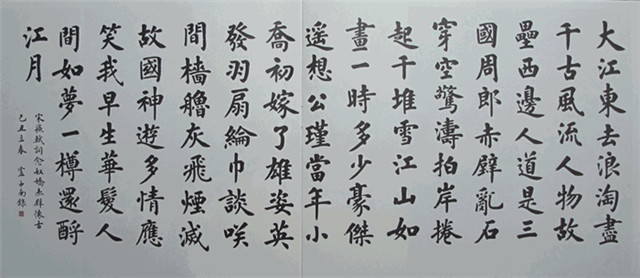 大江東去浪淘盡
千古風流人物故
壘西邊人道是三
國周郎赤壁亂石
穿空驚濤拍岸捲
起千堆雪江山如
畫一時多少豪傑
遥想公瑾當年小
喬初嫁了雄姿英
發羽扇綸巾談咲
間檣艣灰飛煙滅
故國神遊多情應
笑我早生華髮人
間如夢一樽還酹
江月
宋蘇軾詞念奴嬌赤壁懷古
己丑立春